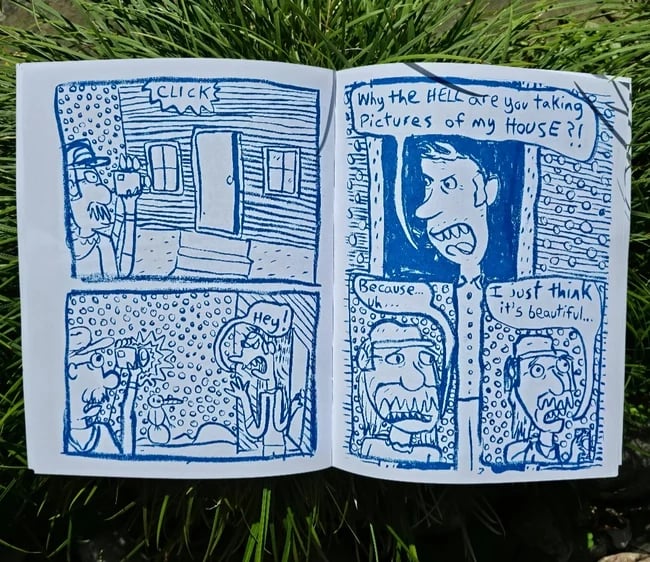 CLICK
Hey!
Why the HELL are you taking
Pictures of my HOUSE?!
Because..
uh...
I just think
it's beautiful...